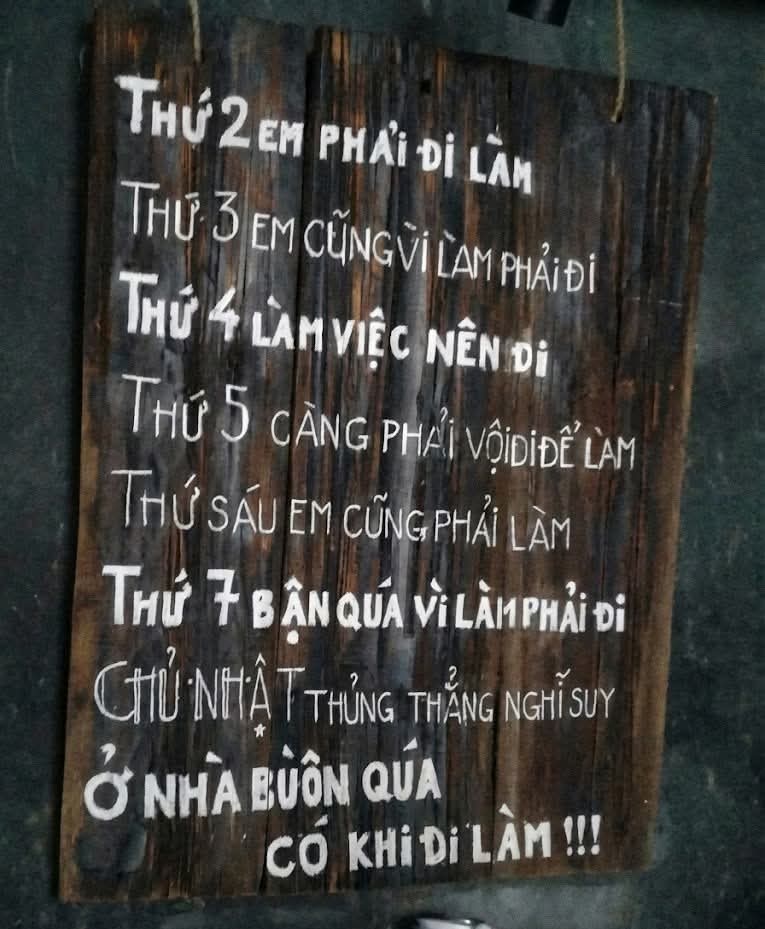 THỨ 2 EM PHẢI ĐI LÀM
THỨ 3 EM CŨNG VÌ LÀM PHẢI ĐI
THỨ 4 LÀM VIỆC NÊN ĐI
THỨ 5 CÀNG PHẢI VỘI ĐI ĐỂ LÀM
THỨ SÁU EM CŨNG PHẢI LÀM
THỨ 7 BẬN QUÁ VÌ LÀM PHẢI ĐI
CHỦ NHẬT THỦNG THẲNG NGHĨ SUY
Ở NHÀ BUỒN QUÁ
CÓ KHI ĐI LÀM !!!